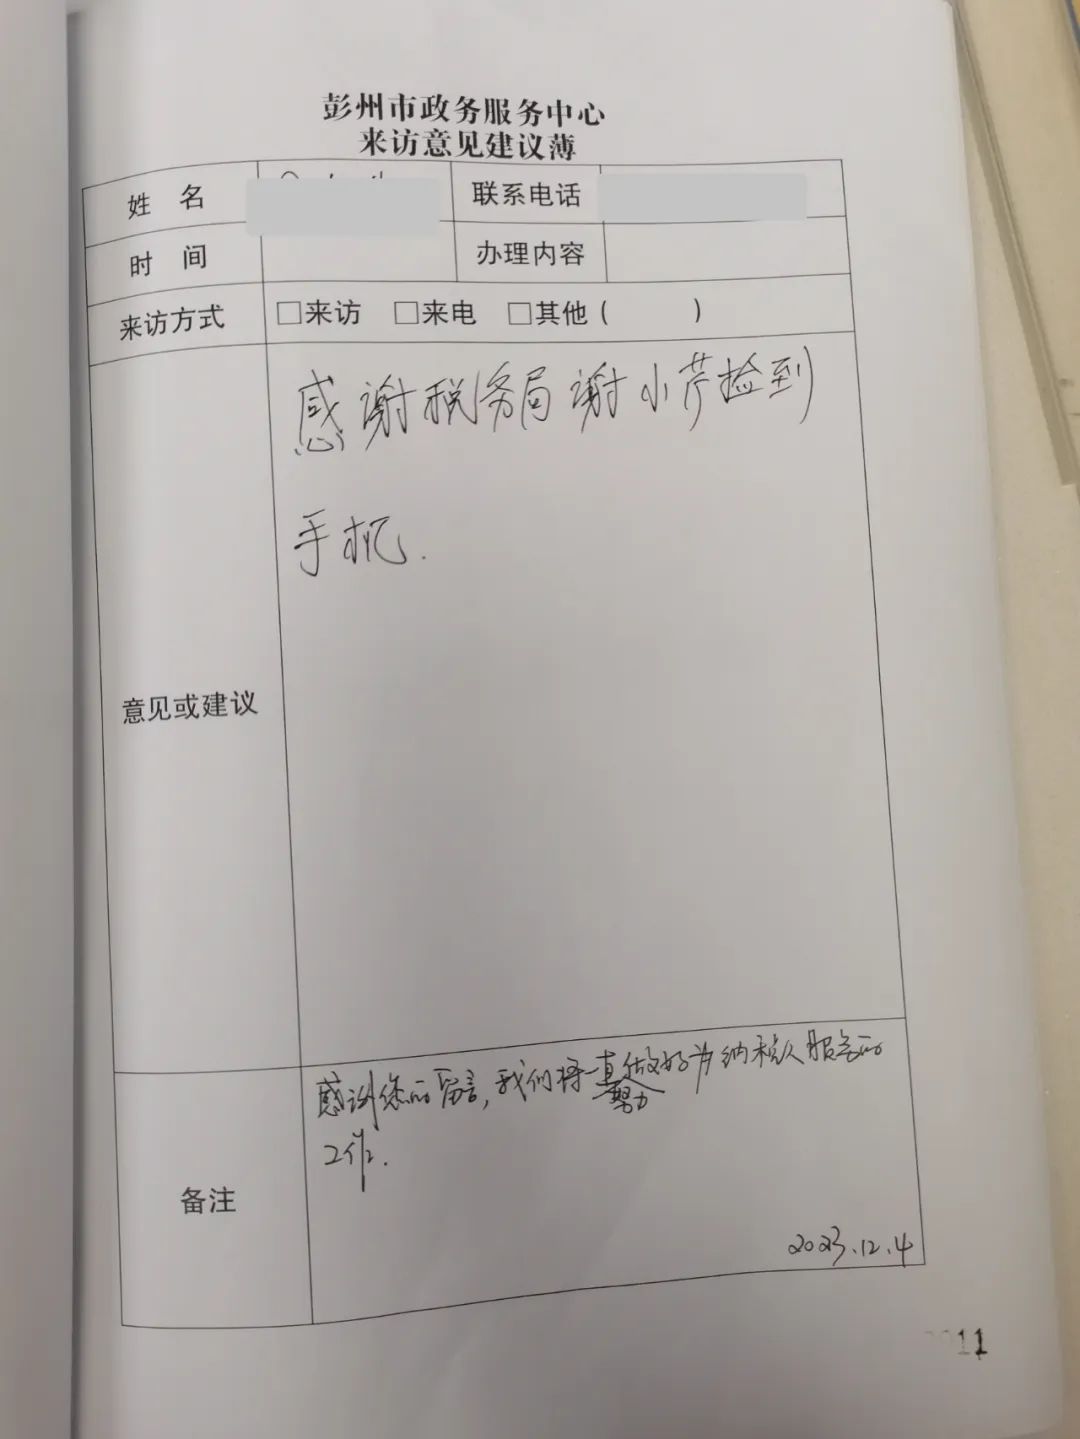 彭州市政务服务中心
来访意见建议薄
姓 名 联系电话
时 间 办理内容
来访方式 □来访 □来电 □其他( )
感谢税务局谢小芹捡到
手机.
意见或建议
感谢您的留言,我们将一直努力做好为纳税人服务的
工作.
备注
2023.12.4
011